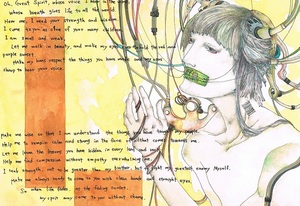 Oh, Great Spirit, whose voice I hear in the
whose breath gives life to all the
Hear me: I need your strength and wisdom.
I come to you as one of your many children
I am small and weak
Let me walk in beauty, and make my eyes ever behold the red and
purple sunset
Make my hands respect the things you have made and my ears
sharp to hear your voice.
Make me wise so that I may understand the things you have taught my people.
Help me to remain calm and strong in the face of all that comes towards me.
Let me learn the lessons you have hidden in every leaf and
Help me find compassion without empathy overwhelming me.
I seek strength, not to be greater than my brother, but to fight my greatest enemy Myself.
Make me always ready to come to you with clean hands and straight eyes.
So when life fades, as the fading sunset,
my spirit may come to you without shame.